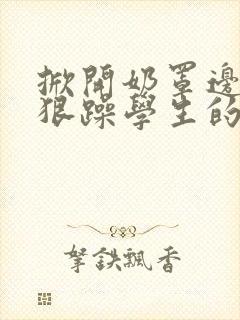 掀開奶罩邊
狠躁學生的
拏鉄飄香